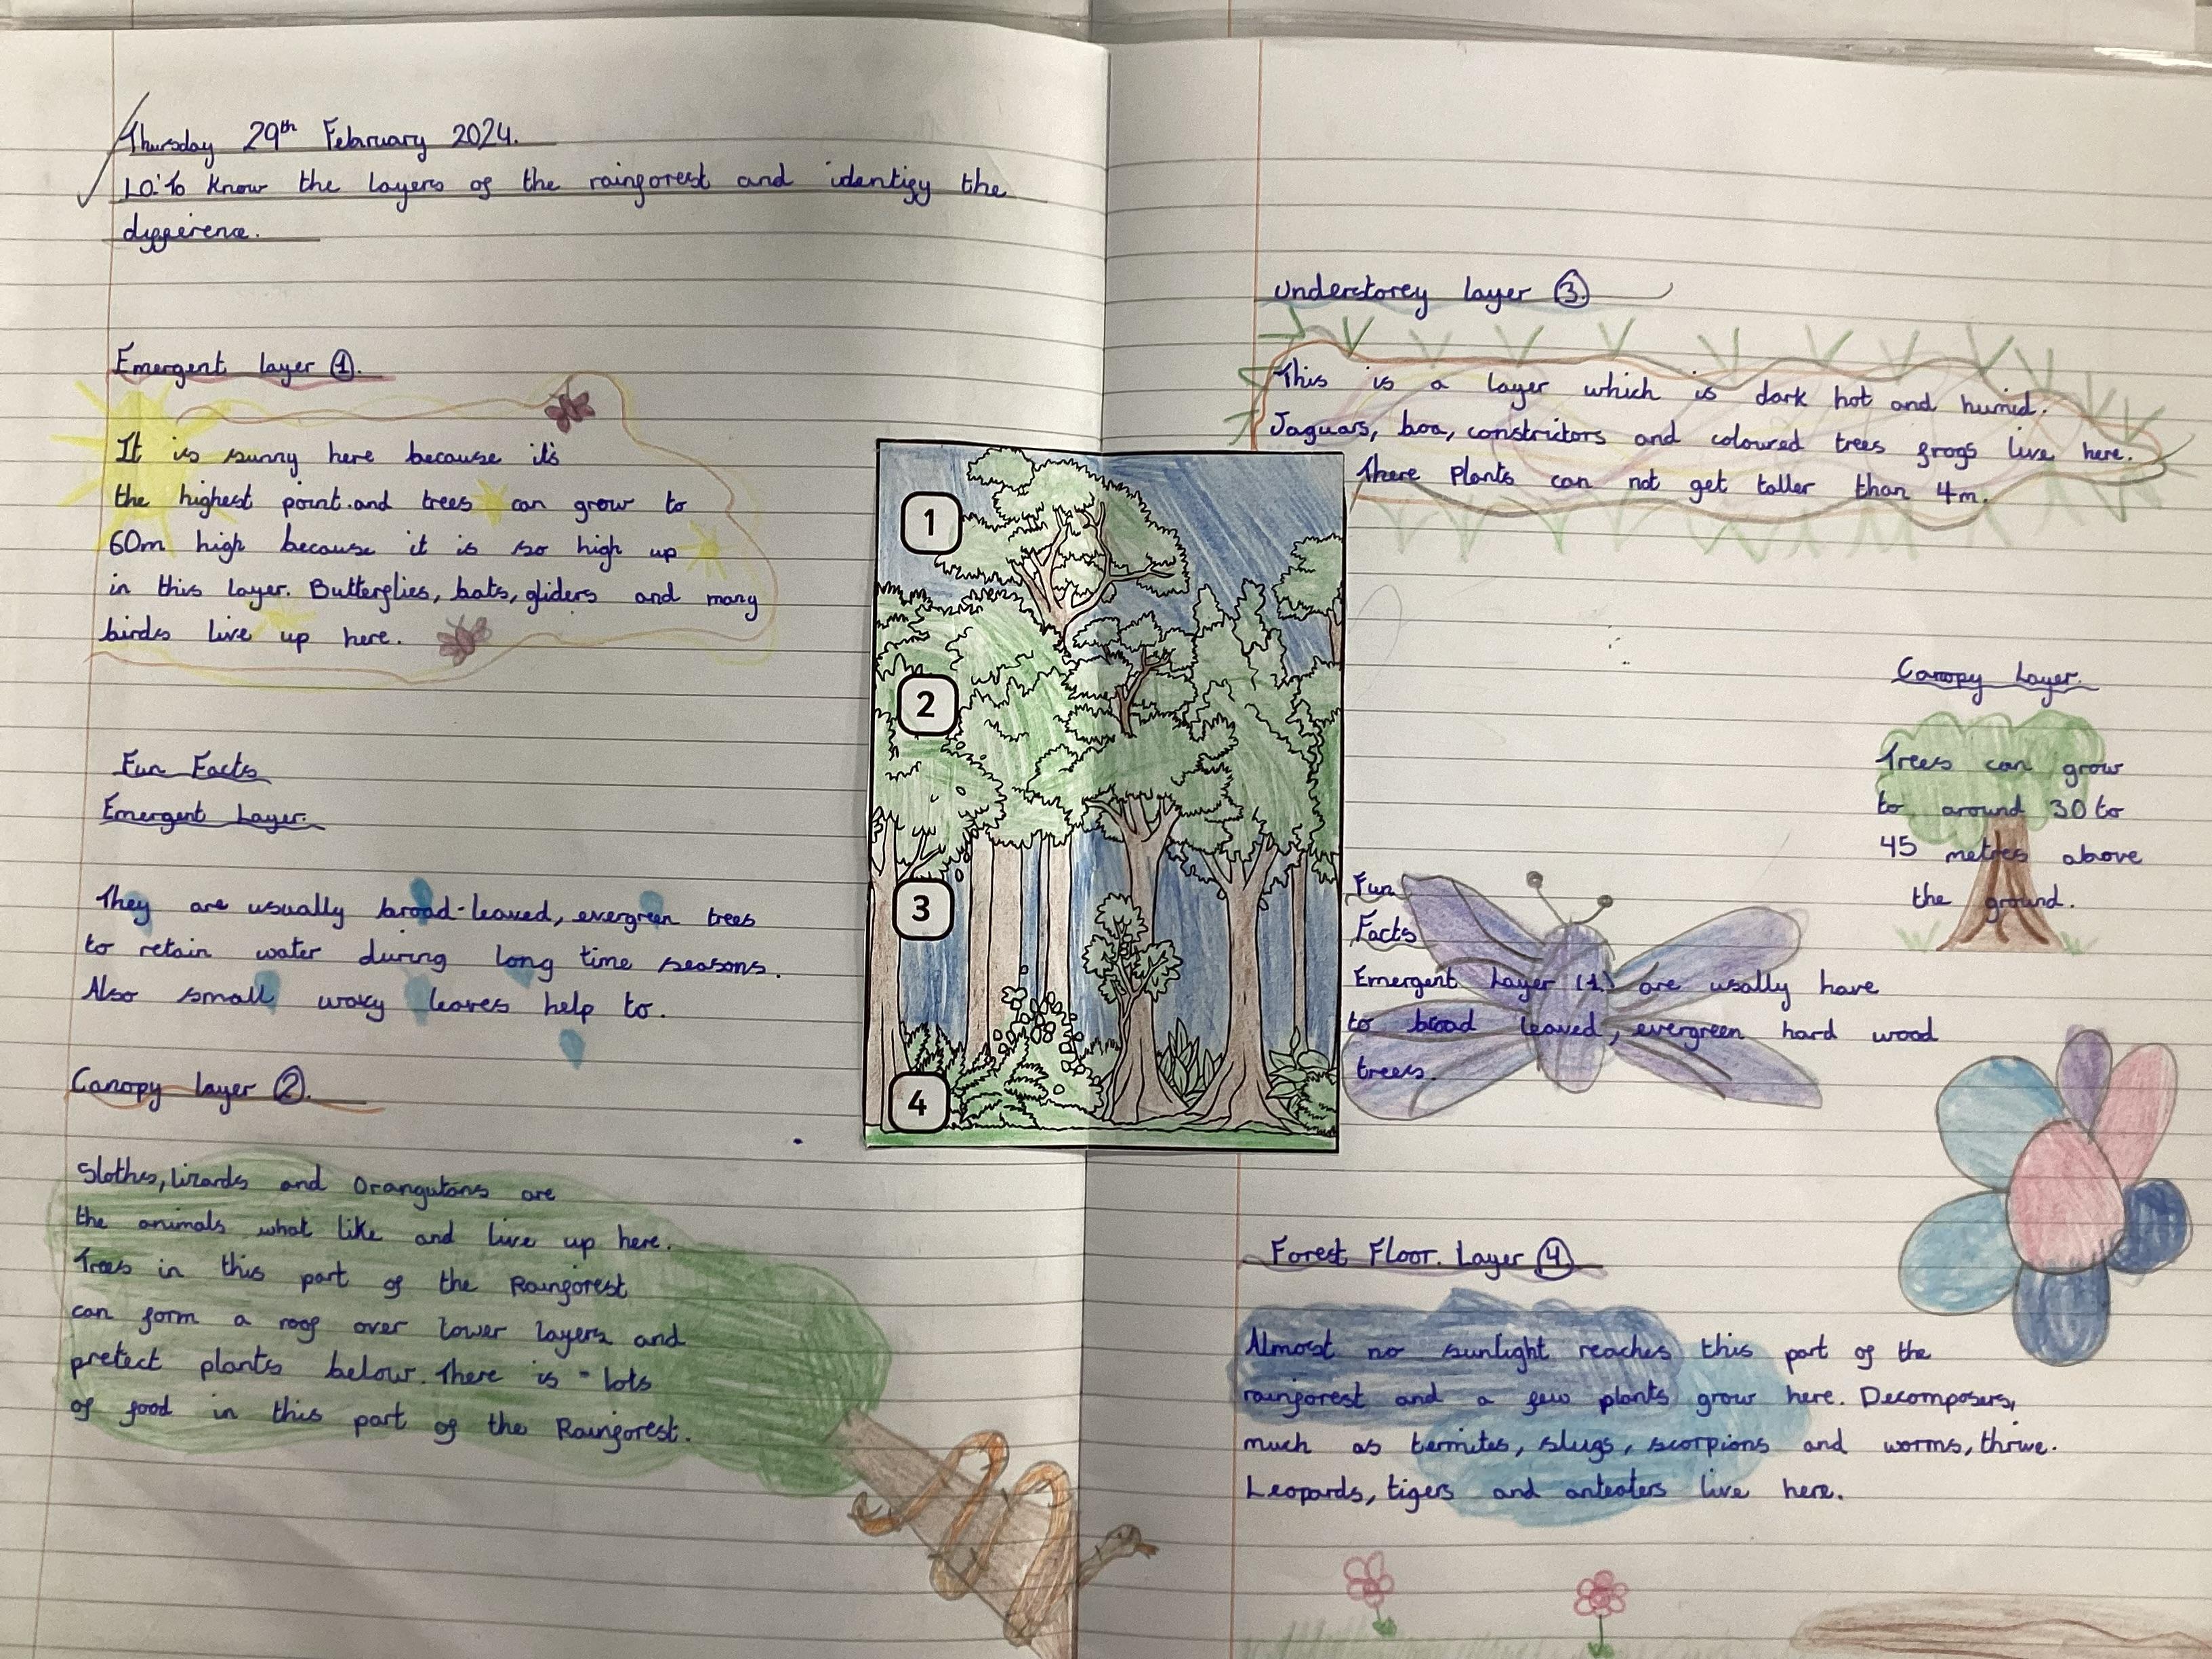 Thursday 29th February 2024.
LO: To know the layers of the rainforest and identify the
difference.
Emergent layer 1.
It is sunny here because it's
the highest point.and trees can grow to
60m high because it is so high up
in this layer. Butterflies, bats, gliders and many
birds live up here.
Fun Facts
Emergent Layer.
They are usually broad-leaved, evergreen trees
to retain water during long time seasons.
Also small waxy leaves help to.
Canopy layer 2.
Slothes, lizards and Orangutans are
the animals what like and live up here.
Trees in this part of the Rainforest
can form a roof over lower layers and
pretect plants below. There is - lots
of food in this part of the Rainforest.
1
2
3
4
Understorey layer 3.
This is a layer which is dark hot and humid.
Jaguars, boa, constrictors and coloured trees frogs live here.
There Plants can not get taller than 4m.
Canopy Layer.
Trees can grow
to around 30 to
45 metres above
the ground.
Fun
Facts
Emergent Layer (1.) are usally have
to broad leaved, evergreen hard wood
trees.
Forest Floor. Layer 4
Almost no sunlight reaches this part of the
rainforest and a few plants grow here. Decomposers,
much as termites, slugs, scorpions and worms, thrive.
Leopards, tigers and anteaters live here.